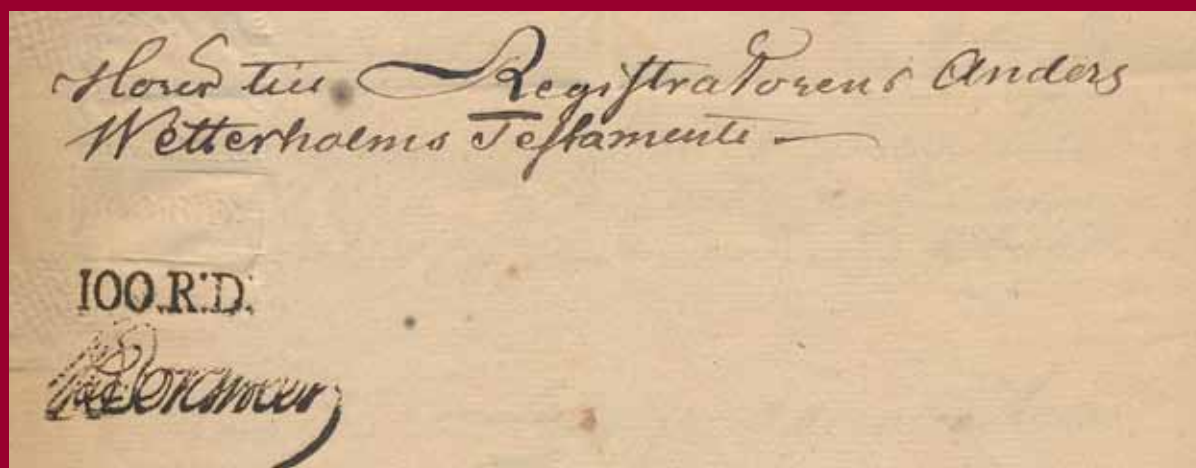 Hörer till Registratorens Anders
Wetterholms Testamente
100.R:D: